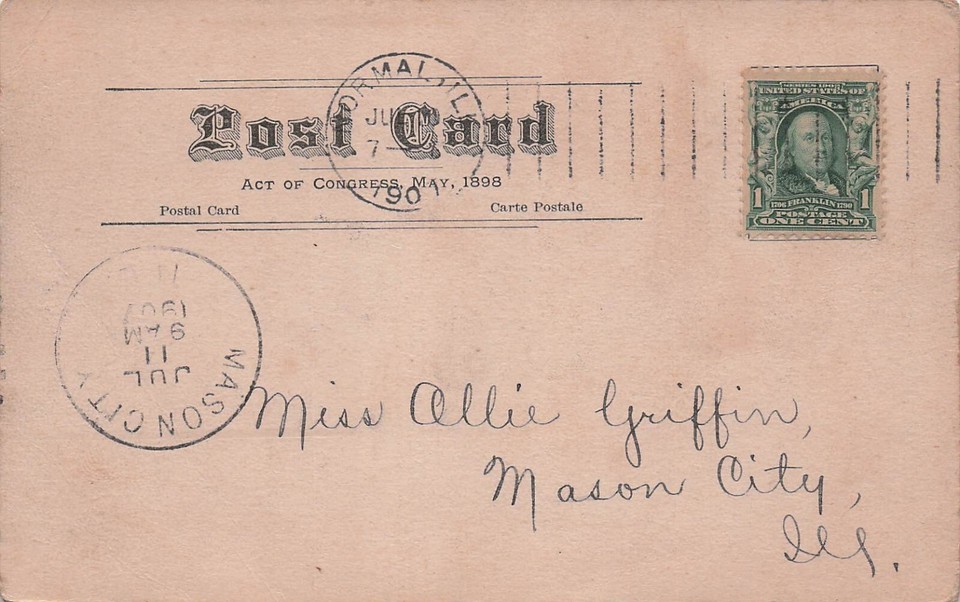 Post Card
ACT OF CONGRESS, MAY, 1898
Postal Card Carte Postale
NORMAL, ILL
7
190
SERIES 1902
UNITED STATES OF
AMERICA
1 1
1706 FRANKLIN 1790
POSTAGE
ONE CENT
MASON CITY
JUL
11
9 AM
1907
Miss Allie Griffin,
Mason City,
Ill.